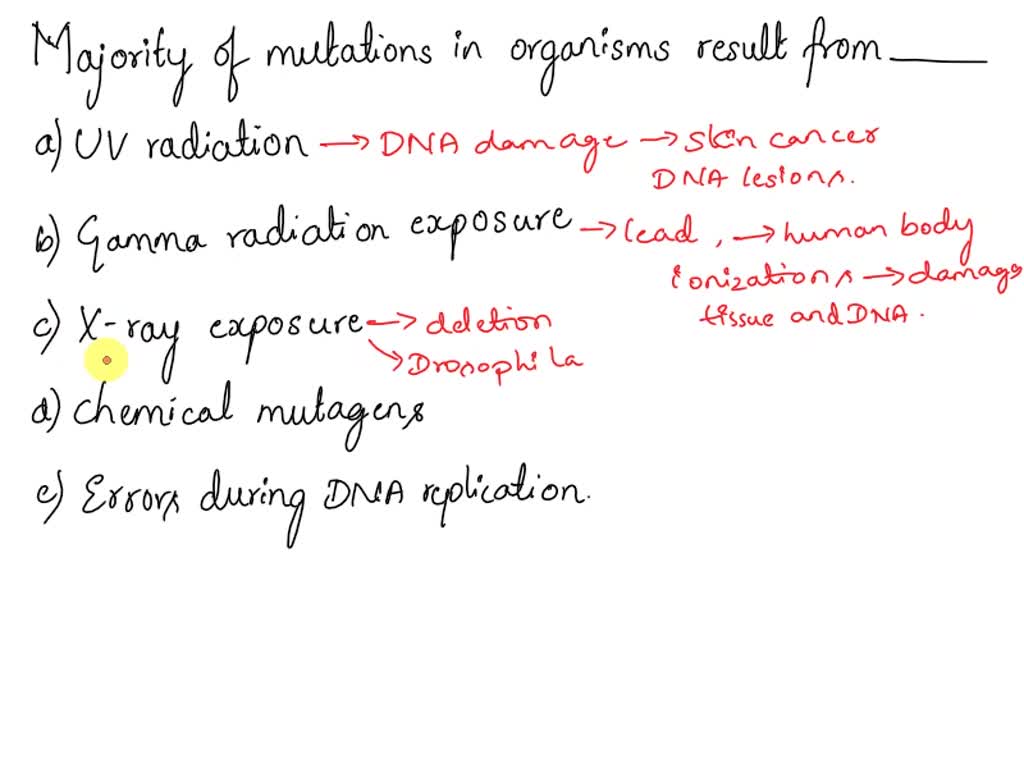 Majority of mutations in organisms result from ____
a) UV radiation → DNA damage → skin cancer
DNA lesions.
b) Gamma radiation exposure → lead , → human body
ionizations → damage
tissue and DNA .
c) X-ray exposure → deletion
→ Drosophila
d) Chemical mutagens
e) Errors during DNA replication.